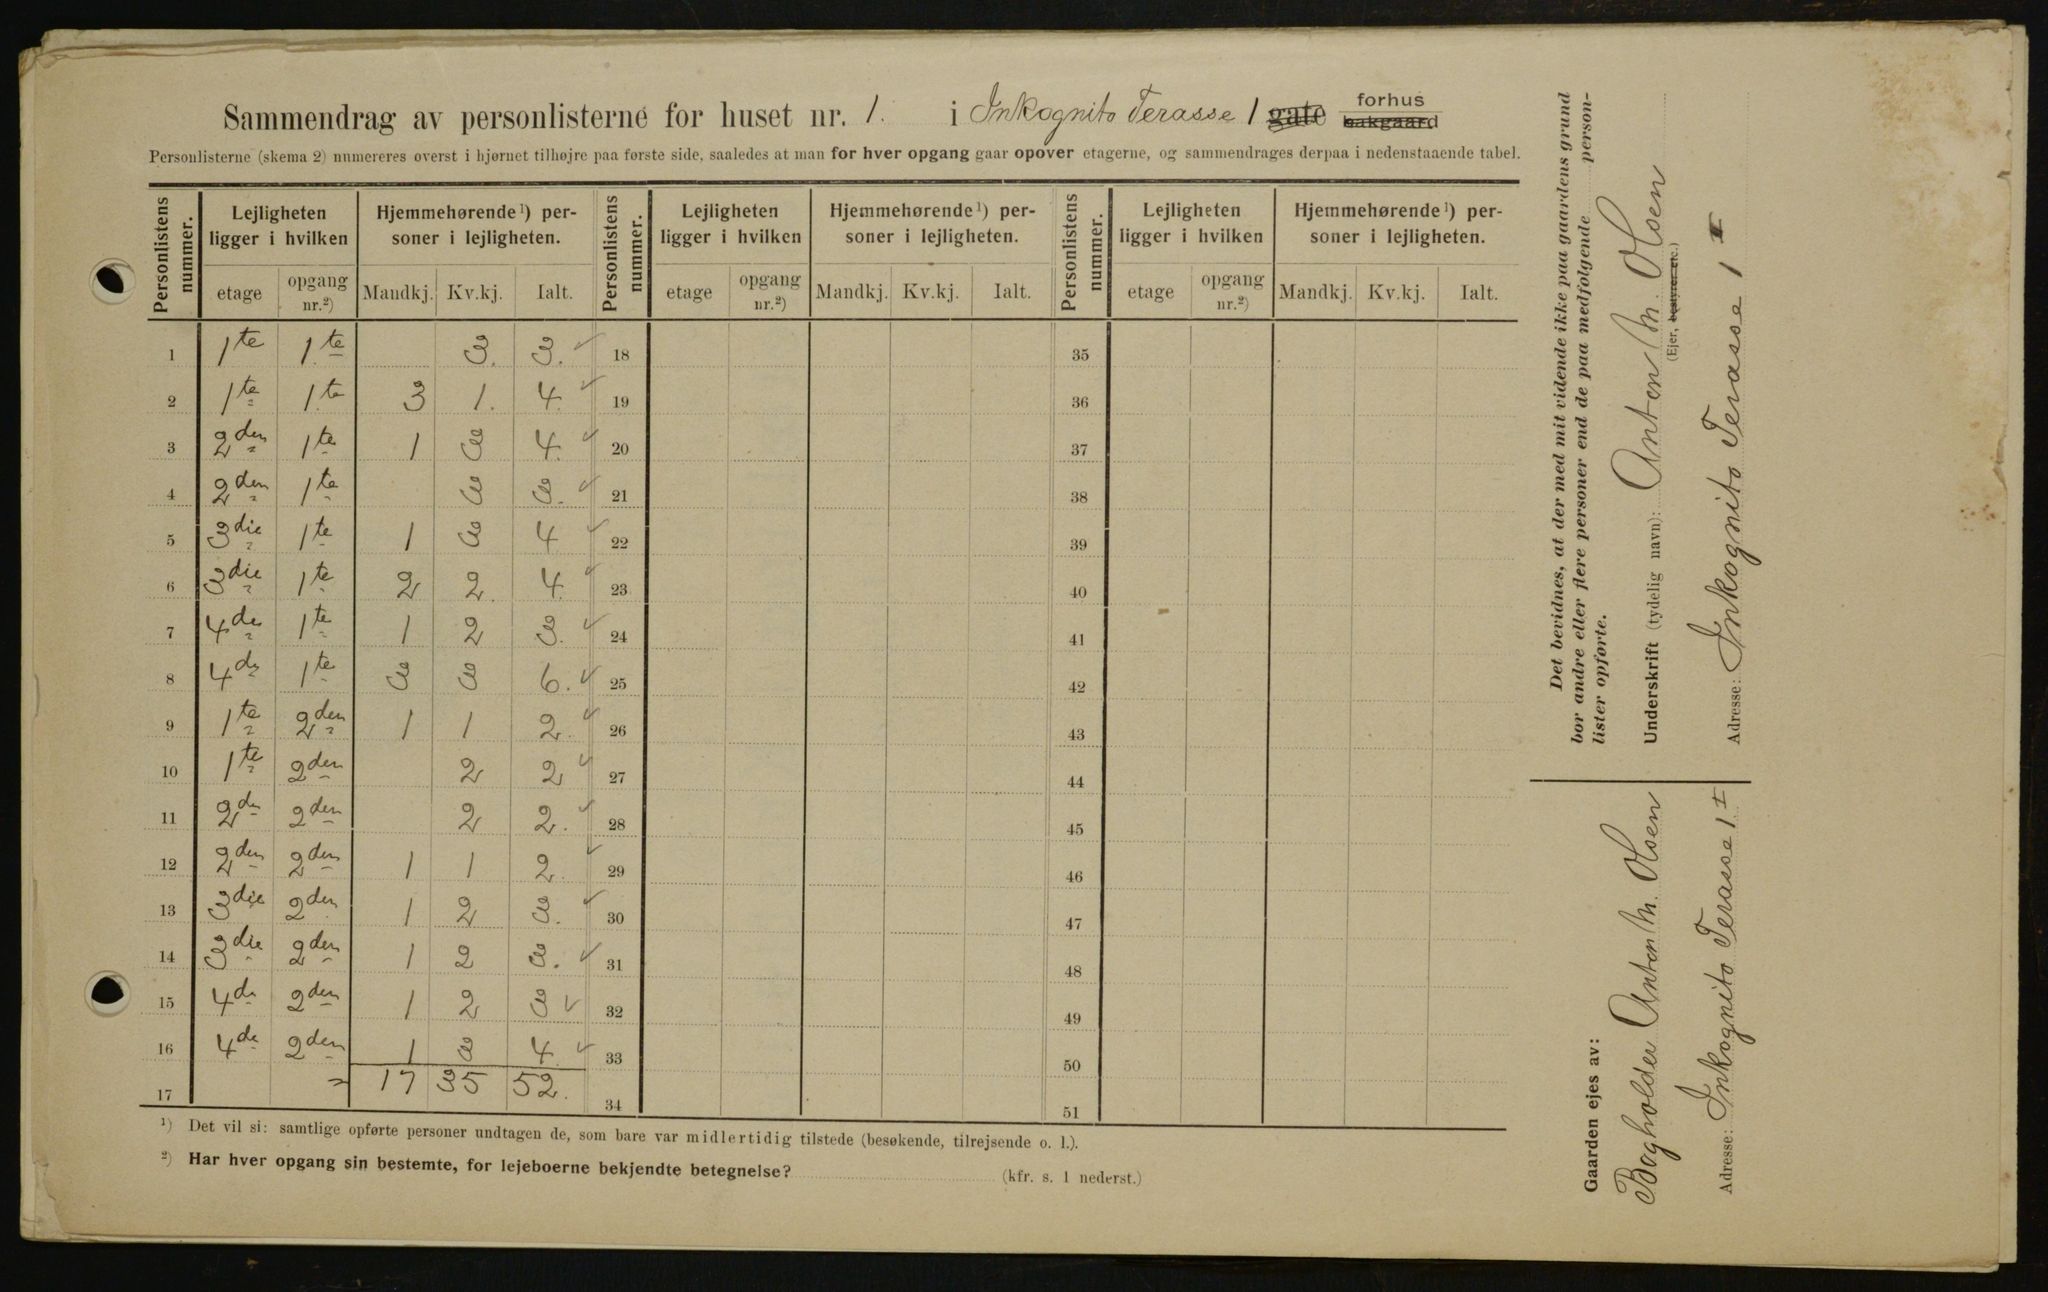 Sammendrag av personlisterne for huset nr. 1. i Inkognito Terasse 1 gate forhus bakgaard
Personlisterne (skema 2) numereres øverst i hjørnet tilhøjre paa første side, saaledes at man for hver opgang gaar opover etagerne, og sammendrages derpaa i nedenstaaende tabel.
Personlistens nummer. Lejligheten ligger i hvilken Hjemmehørende ¹) personer i lejligheten. Personlistens nummer. Lejligheten ligger i hvilken Hjemmehørende ¹) personer i lejligheten. Personlistens nummer. Lejligheten ligger i hvilken Hjemmehørende ¹) personer i lejligheten.
etage opgang nr.²) Mandkj. Kv.kj. Ialt. etage opgang nr.²) Mandkj. Kv.kj. Ialt. etage opgang nr.²) Mandkj. Kv.kj. Ialt.
1 1te 1te 3. 3. ✓ 18 35
2 1te 1te 3 1. 4. ✓ 19 36
3 2den 1te 1 3 4. ✓ 20 37
4 2den 1te 3 3. ✓ 21 38
5 3die 1te 1 3 4 ✓ 22 39
6 3die 1te 2 2. 4. ✓ 23 40
7 4de 1te 1 2 3. ✓ 24 41
8 4de 1te 3 3 6. ✓ 25 42
9 1te 2den 1 1 2. ✓ 26 43
10 1te 2den 2 2 ✓ 27 44
11 2den 2den 2 2. ✓ 28 45
12 2den 2den 1 1 2. ✓ 29 46
13 3die 2den 1 2 3. ✓ 30 47
14 3die 2den 1 2 3. ✓ 31 48
15 4de 2den 1 2 3 ✓ 32 49
16 4de 2den 1 3 4. ✓ 33 50
17 = 17 35 52. 34 51
¹) Det vil si: samtlige opførte personer undtagen de, som bare var midlertidig tilstede (besøkende, tilrejsende o. l.).
²) Har hver opgang sin bestemte, for lejeboerne bekjendte betegnelse? (kfr. s. 1 nederst.)
Det bevidnes, at der med mit vidende ikke paa gaardens grund
bor andre eller flere personer end de paa medfølgende personlister opførte.
Underskrift (tydelig navn): Anton M. Olsen
(Ejer, bestyrer etc.)
Adresse: Inkognito Terasse 1 I
Gaarden ejes av:
Bogholder Anton M. Olsen
Adresse: Inkognito Terasse 1 I